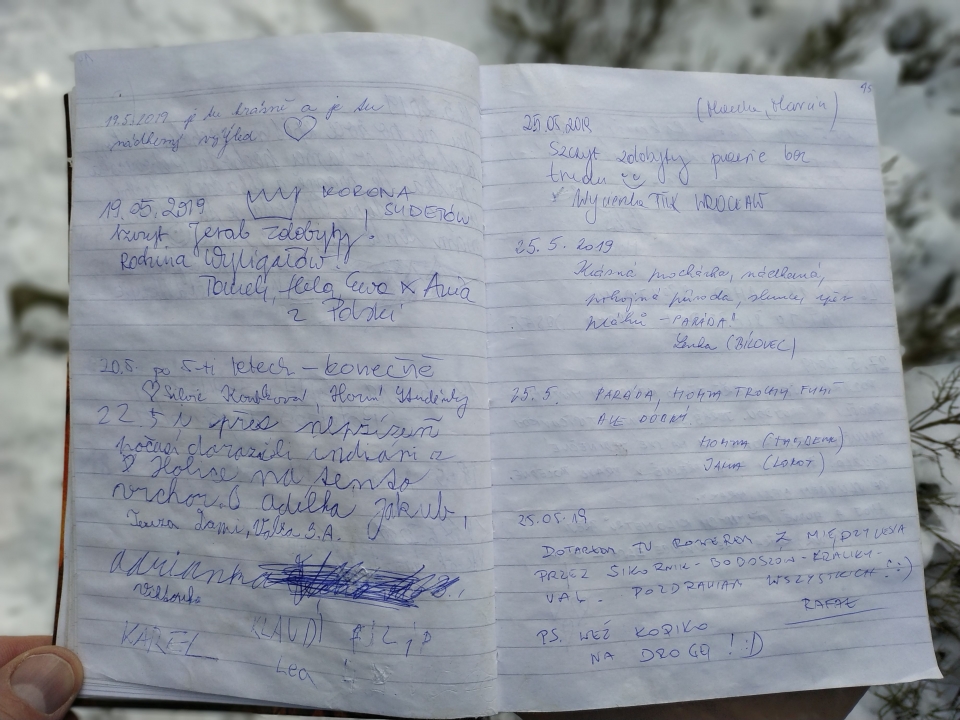 19.5.2019 je tu krásně a je tu
nádherný výhled
19.05.2019 KORONA
SUDETÓW
Szczyt Jeřab zdobyty!
Rodzina
Tomek, Hela, Ewa & Ania
z Polski
20.5. po 5-ti letech - konečně
Silvie Horní Studénky
22.5 i přes nepřízeň
počasí dorazili indiani z
na tento
vrchol. adélka jakub,
adrianka
KAREL KLAUDI FILIP
Lea
95
25.05.2019
Szczyt zdobyty prawie bez
trudu
Wycieczka WROCŁAW
25.5.2019
Krásná procházka, nádherná,
pokojná příroda, slunce,
ptáků - PARÁDA!
Lenka (BÍLOVEC)
25.5. PARÁDA, TROCHU FUČÍ
ALE DOBRÝ
JANA
25.05.19
DOTARŁEM TU ROWEREM Z MIĘDZYLESIA
PRZEZ SIKORNIK - BOBOSZÓW - KRALIKY -
VAL. POZDRAWIAM WSZYSTKICH! :)
RAFAŁ
PS. WEŹ KOPIKO
NA DROGĘ! :D